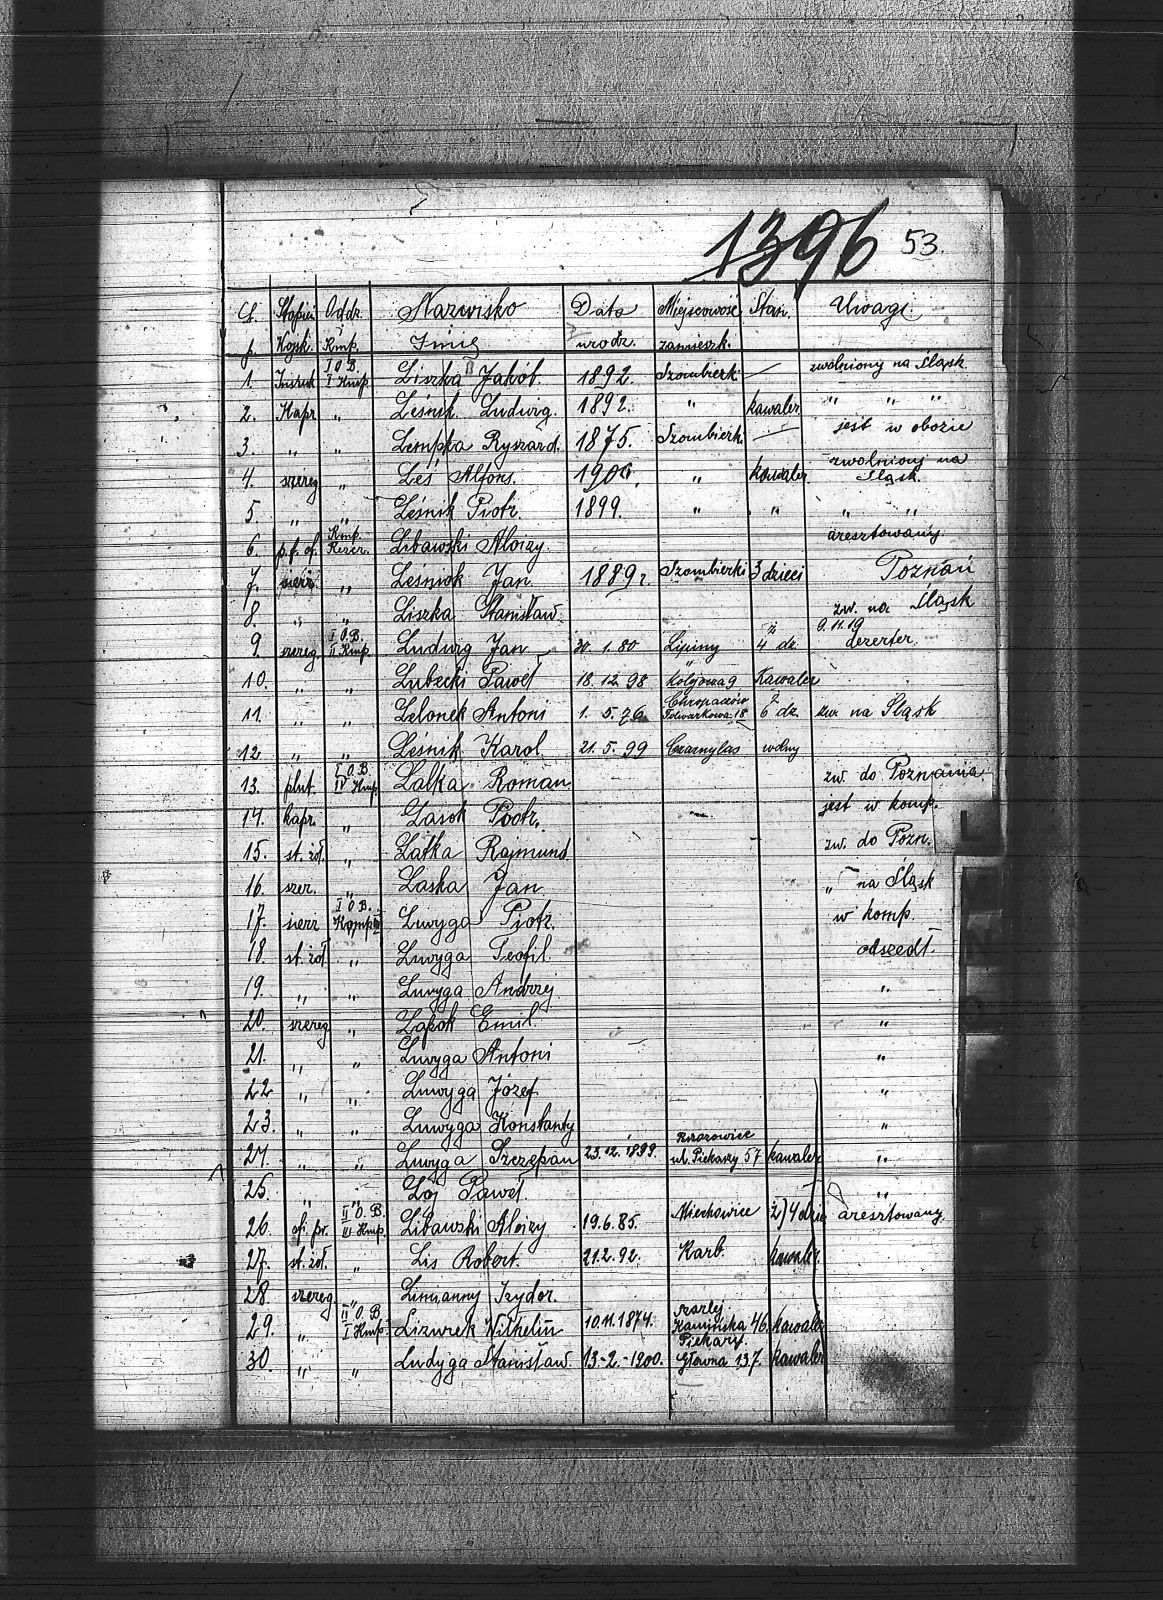 1396 53.
L. Stopień Oddz. Nazwisko Data Miejscowość Stan. Uwagi.
p. Wojsk. Kmp. Imię urodz. zamieszk.
1. Instruk I O.B. I Kmp. Liszka II Jakób. 1892. Szombierk — zwolniony na Śląsk.
2. Kapr „ Leśnik Ludwig. 1892. „ kawaler „ „ „
3. „ „ Lempka Ryszard. 1875. Szombierk. — jest w obozie
4. szereg „ Leś Alfons. 1900. „ kawaler zwolniony na Śląsk.
5. „ „ Leśnik Piotr. 1899. „ „ „ „
6. p.f. of. Kmp. Rezer. Libawski Aloizy. aresztowany.
7. sierż. „ Leśniok Jan. 1889r Szombierki 3 dzieci Poznań
8. „ „ Liszka Stanisław. zw. na Śląsk
9. szereg I O.B. II Kmp. Ludwig Jan 30. 1. 80 Lipiny ż 4 dz. 9.11.19 dezerter.
10. „ „ Lubecki Paweł 18. 12. 98 „ Kolejowa 9 Kawaler
11. „ „ Lelonek Antoni 1. 5. 76 Chropaczów Folwarkowa 18 ż 6 dz. zw. na Śląsk
12. „ „ Leśnik Karol 21. 5. 99 Czarnylas wolny
13. plut. I O.B. IV Kmp Lalka Roman zw. do Poznania
14. kapr. „ Lasok Piotr. jest w komp.
15. st. żoł. „ Latka Rajmund zw. do Pozn.
16. szer. „ Laska Jan „ na Śląsk
17. sierż I O.B. Komp Luwyga Piotr. w komp.
18. st. żoł „ Luwyga Teofil. odszedł.
19. „ „ Luwyga Andrzej „
20. szereg „ Lapok Emil. „
21. „ „ Luwyga Antoni „
22 „ „ Luwyga Józef „
23. „ „ Luwyga Konstanty „
24. „ „ Luwyga Szczepan 23. 12. 1899 ul. Piekary 57 kawaler „
25. „ „ Loj Paweł „
26. of. pr. II O.B. III Kmp. Libawski Aloizy 19. 6. 85. Miechowice ż) 4 dzie aresztowany.
27. st. żoł. „ Lis Robert. 21. 2. 92. Karb. kawaler.
28. szereg „ Limanny Izydor.
29. „ II O.B I Kmp. Lizurek Wilhelm 10. 11. 1874. Szarlej. Kamińska 46. kawaler
30. „ „ Ludyga Stanisław. 13.-2.-1900. Piekary Główna 137. kawaler